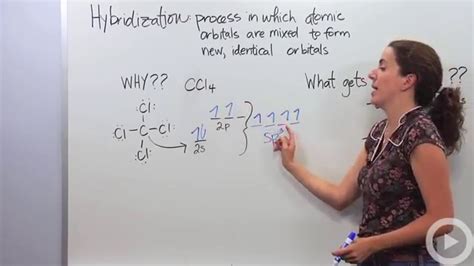 Hybridization: process in which atomic
orbitals are mixed to form
new, identical orbitals
WHY?? CCl4
What gets
:Cl:
:Cl-C-Cl:
:Cl:
2s
2p
sp